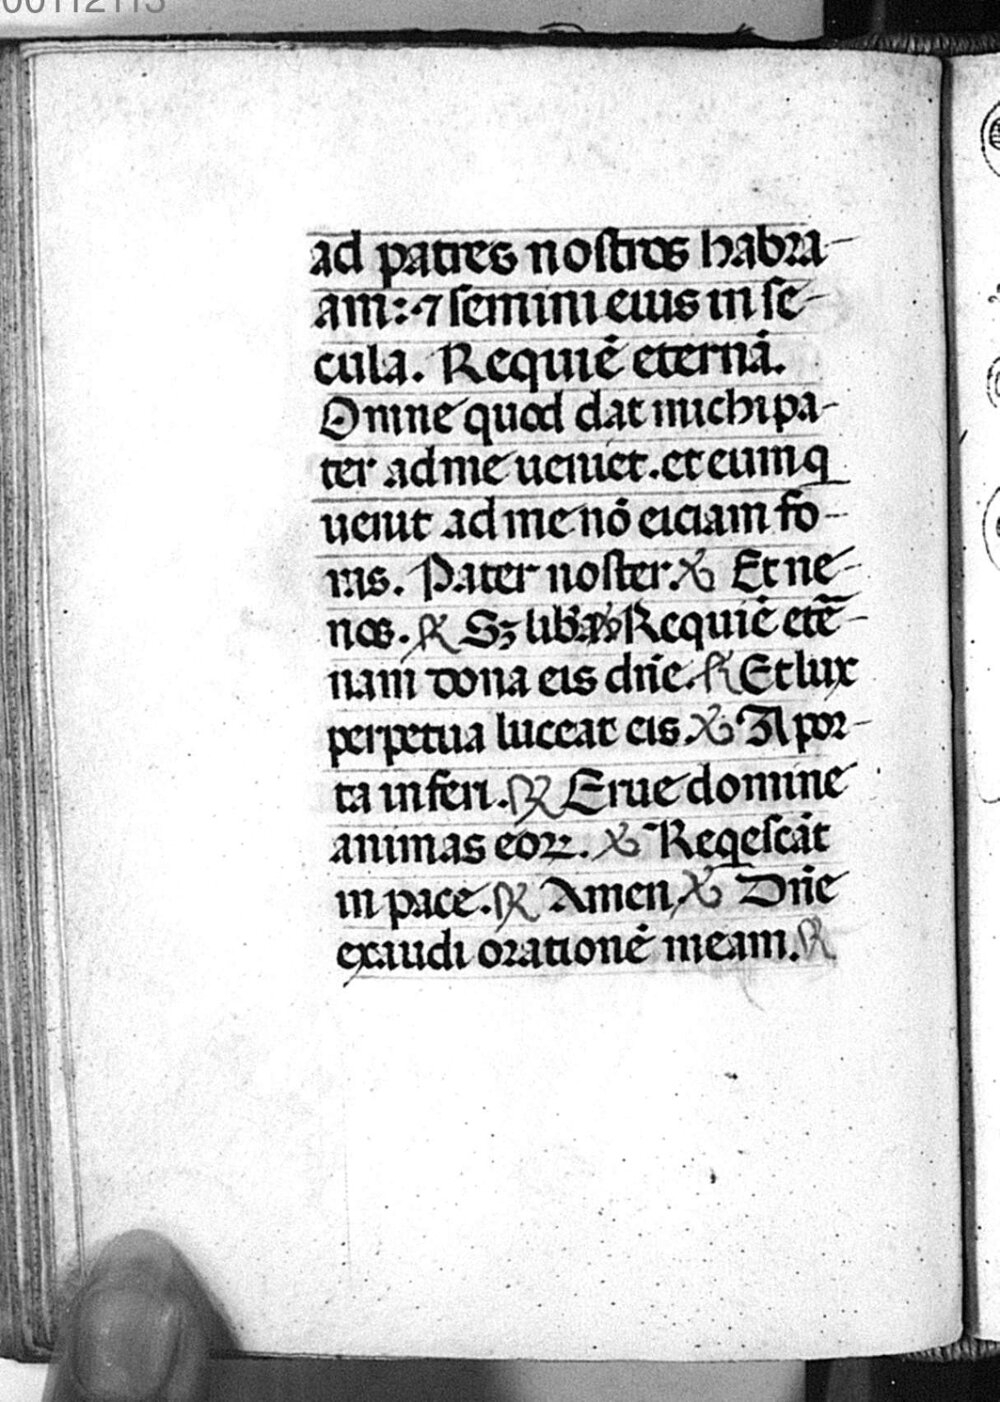 ad patres nostros habra-
am: ⁊ semini eius in se-
cula. Requiē eternā.
Omne quod dat michi pa-
ter ad me ueniet. et eum q
uenit ad me nō eiciam fo-
ras. Pater noster. ℣ Et ne-
nos. ℟ Sꝫ liba ℣ Requiē etē-
nam dona eis dn̄e. ℟ Et lux
perpetua luceat eis. ℣ A por-
ta inferi. ℟ Erue domine
animas eoꝝ. ℣ Reqescāt
in pace. ℟ Amen ℣ Dn̄e
exaudi orationē meam. ℟